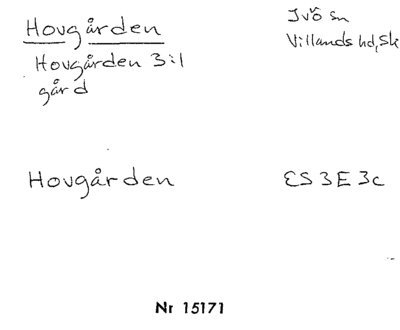 Hovgården
Hovgården 3:1
gård
Ivö sn
Villands hd, Sk
Hovgården
ES 3 E 3c
Nr 15171